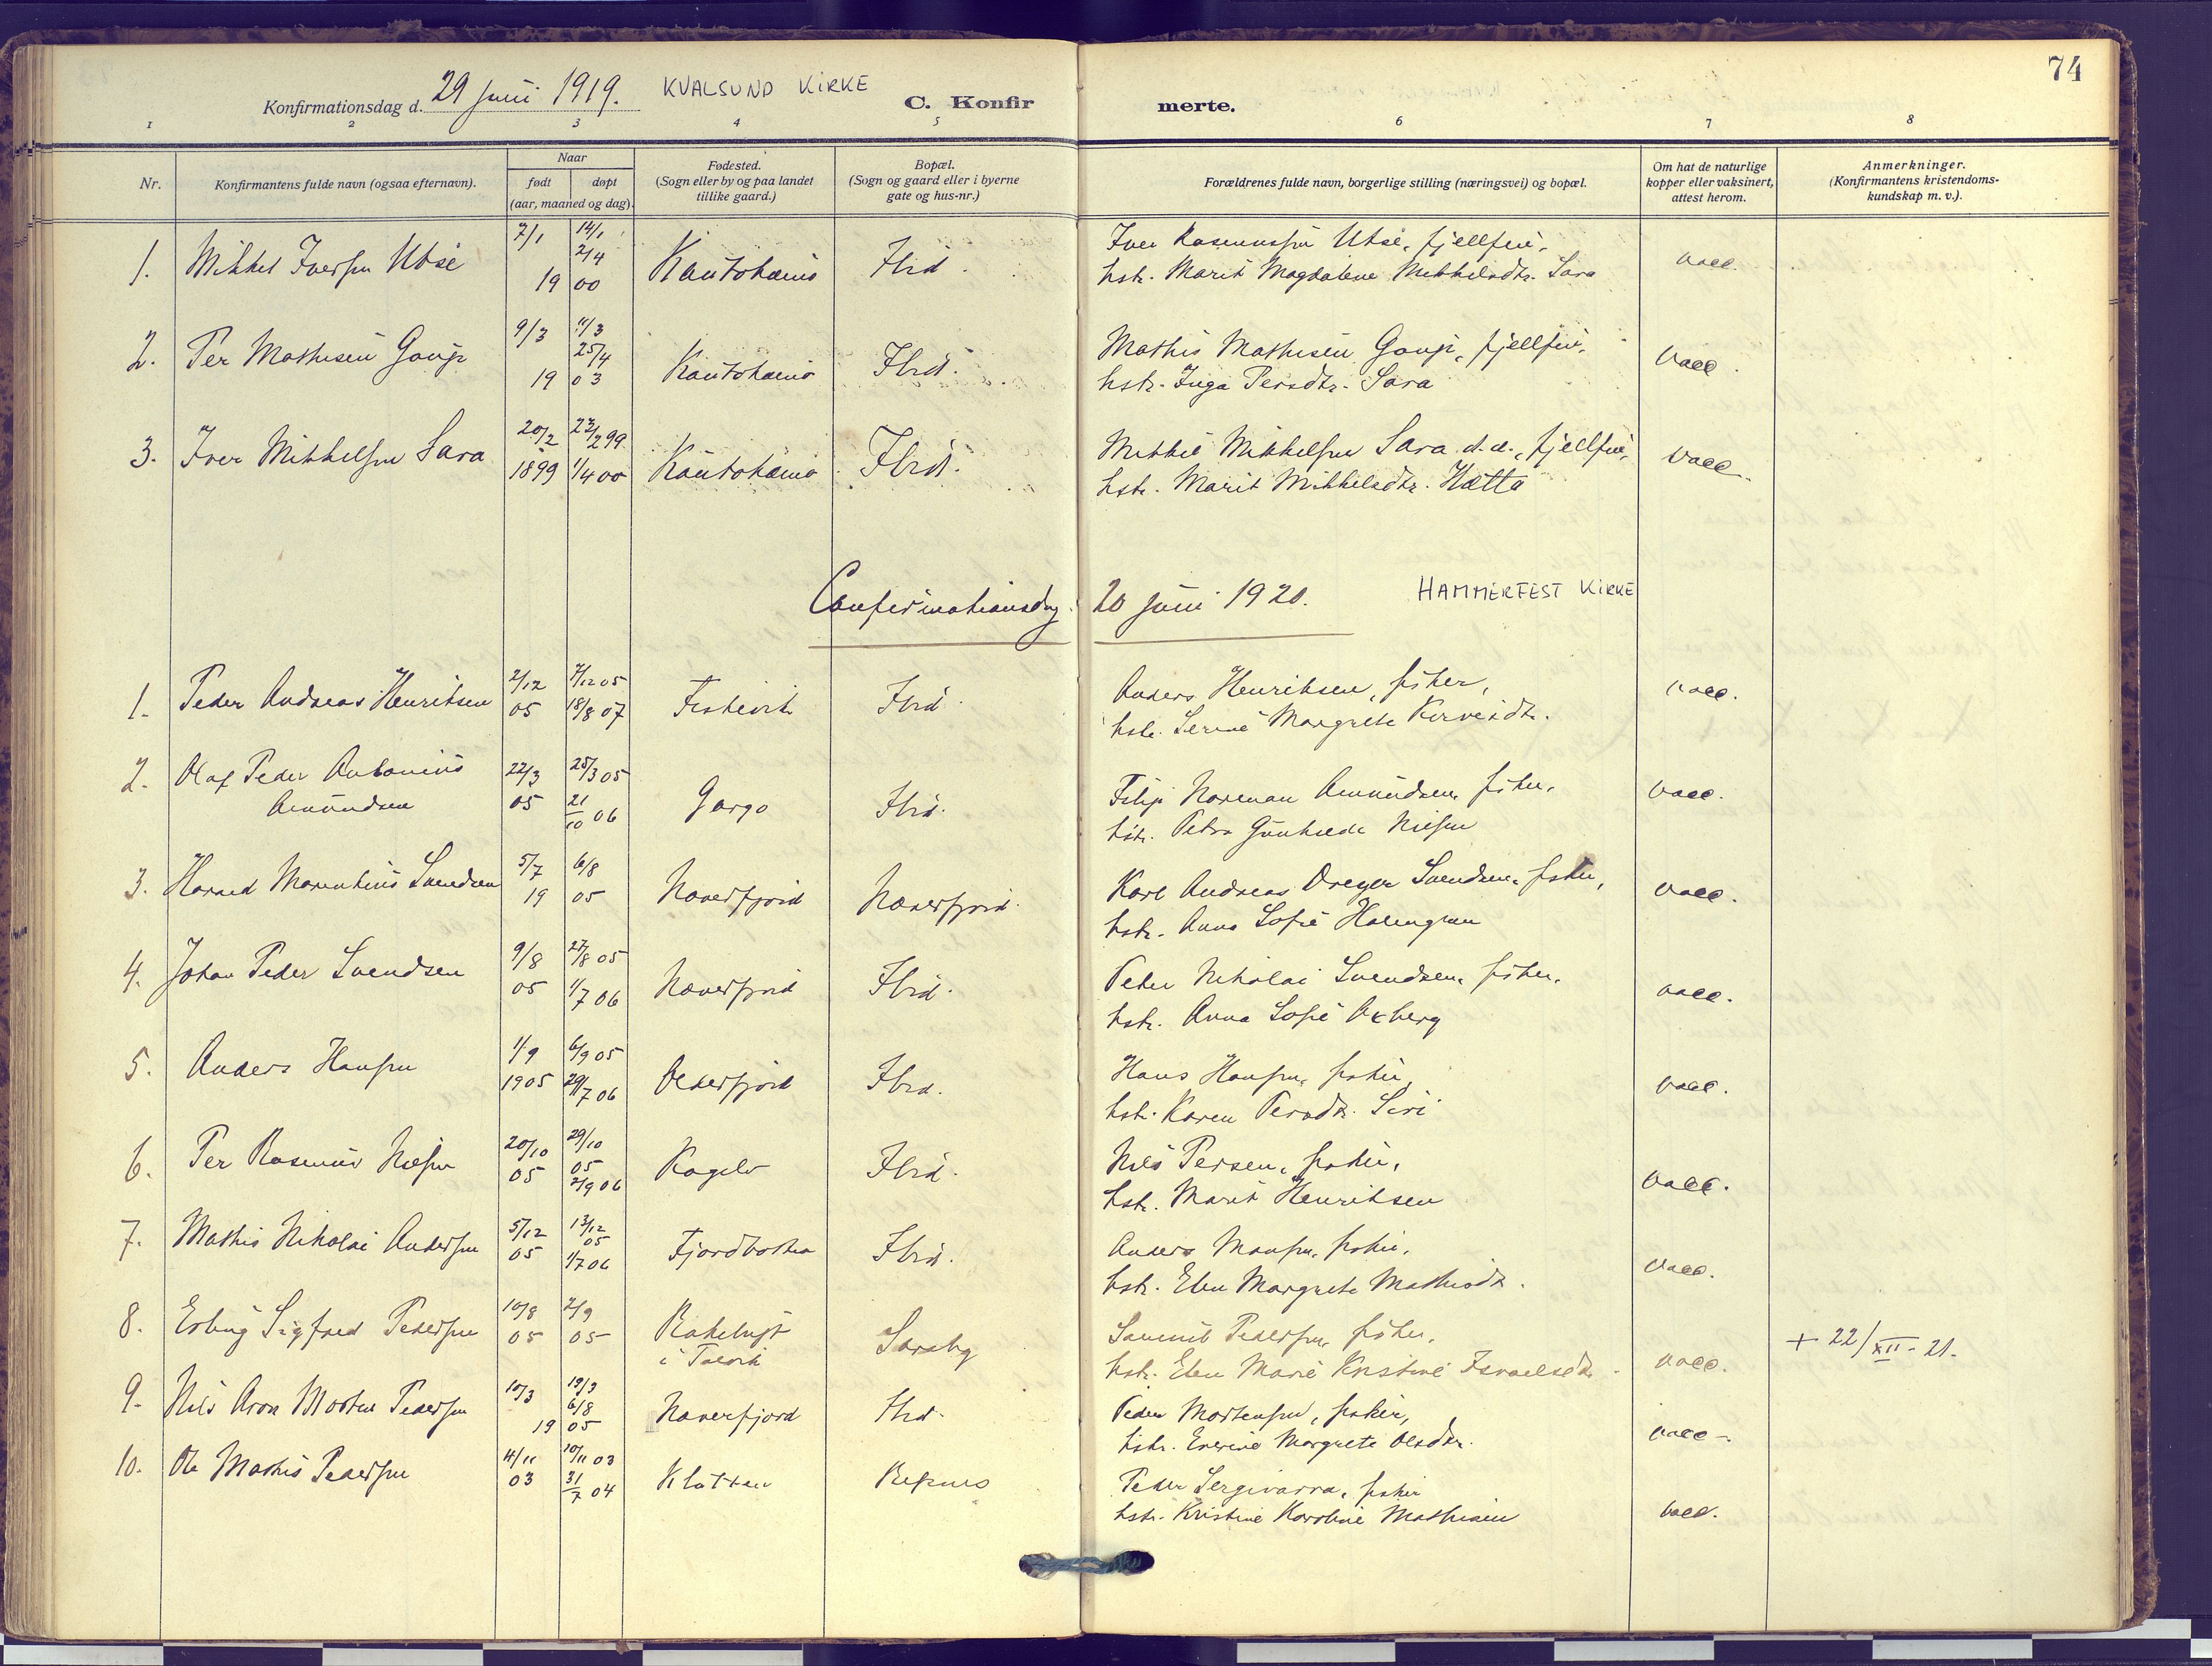 74
Konfirmationsdag d. 29 juni 1919. KVALSUND KIRKE C. Konfirmerte.
1 2 3 4 5 6 7 8
Nr.
Konfirmantens fulde navn (ogsaa efternavn).
Naar
født døpt
(aar, maaned og dag).
Fødested.
(Sogn eller by og paa landet
tillike gaard.)
Bopæl.
(Sogn og gaard eller i byerne
gate og hus-nr.)
Forældrenes fulde navn, borgerlige stilling (næringsvei) og bopæl.
Om hat de naturlige
kopper eller vaksinert,
attest herom.
Anmerkninger.
(Konfirmantens kristendoms-
kundskap m. v.).
1. Mikkel Iversen Utsi 7/1 19 14/1 2/4 00 Kautokeino Ibid.
Iver Rasmussen Utsi, fjellfin,
hstr. Marit Magdalene Mikkelsdtr. Sara vacc.
2. Per Mathisen Gaup 9/3 19 11/3 25/4 03 Kautokeino Ibid.
Mathis Mathisen Gaup, fjellfin,
hstr. Inga Persdtr. Sara vacc.
3. Iver Mikkelsen Sara 20/2 1899 22/2 99 1/4 00 Kautokeino Ibid.
Mikkel Mikkelsen Sara d.d., fjellfin,
hstr. Marit Mikkelsdtr. Hætta vacc.
Confirmationsdag 20 juni 1920. HAMMERFEST KIRKE
1. Peder Andreas Henriksen 2/12 05 7/12 05 18/8 07 Ibid.
Anders Henriksen, fisker,
hstr. Margrete vacc.
2. Olaf Peder Antonius
Amundsen 22/3 05 25/3 05 21/10 06 Gargo Ibid.
Filip Norman Amundsen, fisker,
hstr. Petra Gunhilde Nielsen vacc.
3. Harald Svendsen 5/7 19 6/8 05 Næverfjord Næverfjord.
Karl Andreas Dreyer Svendsen, fisker,
hstr. Anna Sofie Holmgren vacc.
4. Johan Peder Svendsen 9/8 05 27/8 05 1/7 06 Næverfjord Ibid.
Peder Nikolai Svendsen, fisker,
hstr. Anna Sofie Axberg vacc.
5. Anders Hansen 1/9 1905 6/9 05 29/7 06 Olderfjord Ibid.
Hans Hansen, fisker,
hstr. Karen Persdtr. Siri vacc.
6. Per Rasmus Nilsen 20/10 05 29/10 05 2/9 06 Ibid.
Nils Persen, fisker,
hstr. Marit Henriksen vacc.
7. Mathis Nikolai Andersen 5/12 05 13/12 05 1/7 06 Fjordbotten Ibid.
Anders Monsen, fisker,
hstr. Elen Margrete Mathisdtr. vacc.
8. Erling Sigfred Pedersen 10/8 05 2/9 05
i Talvik Sarsby
Pedersen, fisker,
hstr. Elen Marie Kristine Israelsdtr. vacc. + 22/XII - 21.
9. Nils Aron Morten Pedersen 10/3 19 19/3 6/8 05 Næverfjord Ibid.
Peder Mortensen, fisker,
hstr. Everine Margrete Olsdtr. vacc.
10. Ole Mathis Pedersen 4/11 03 10/11 03 31/7 04 Klatten
Peder Sergivarra, fisker
hstr. Kristine Karoline Mathisen vacc.